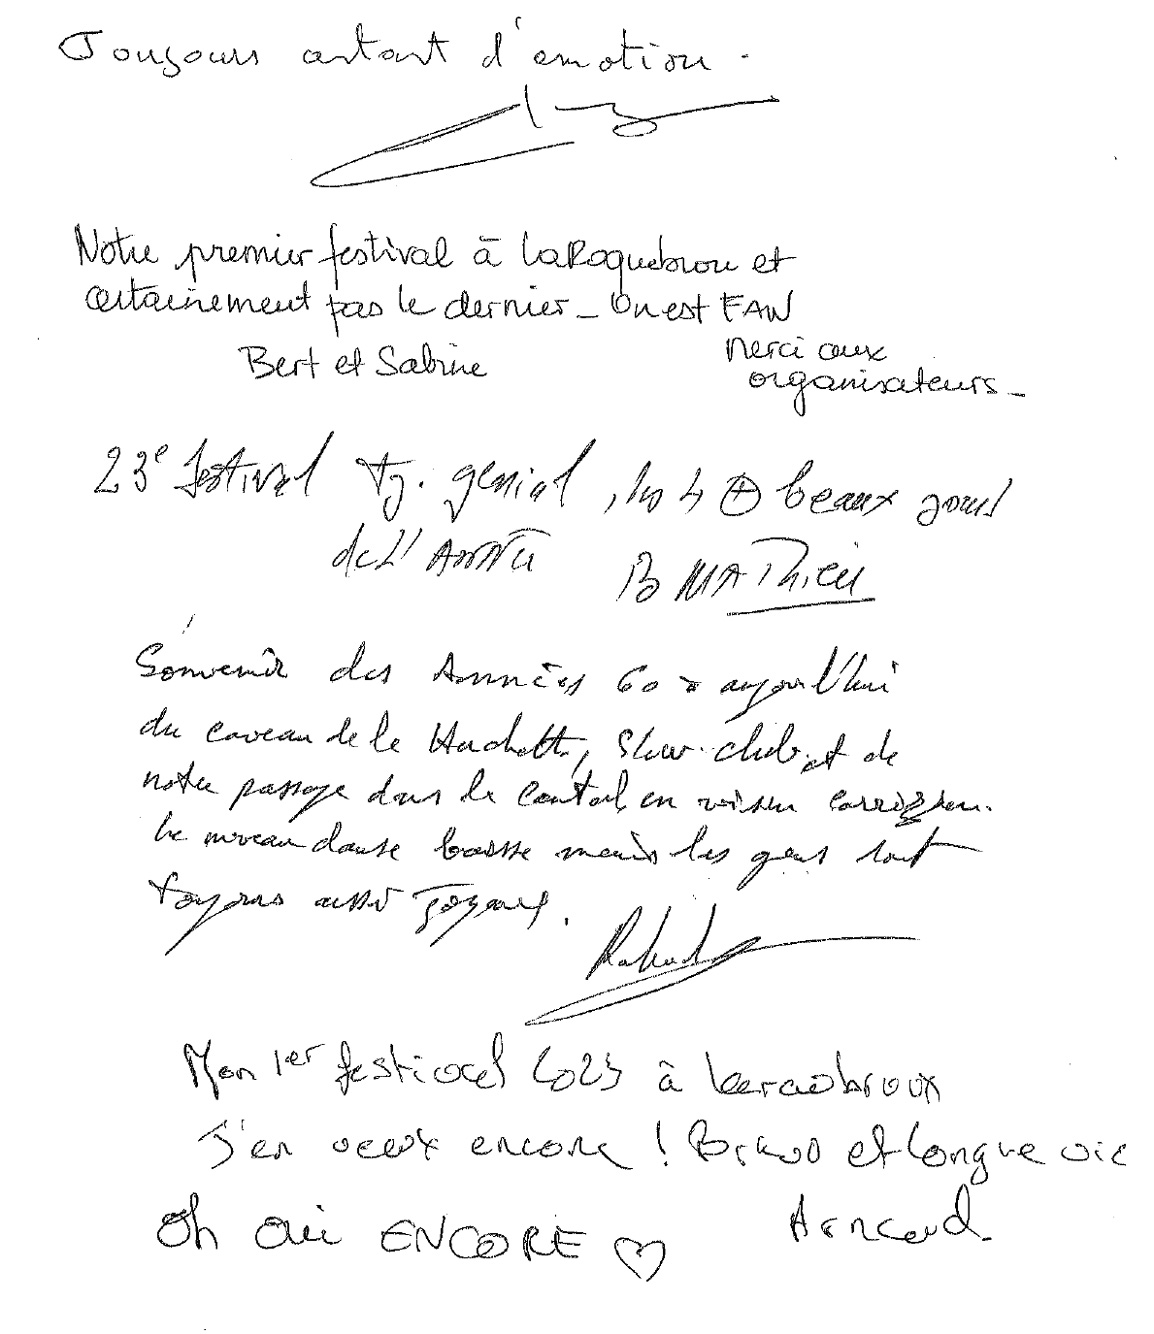 Toujours autant d'émotion.
Notre premier festival à LaRoquebrou et
certainement pas le dernier_ On est FAN
Bert et Sabine
Merci aux
organisateurs_
23e festival tjs. génial, les 4 ⊕ beaux jours
de L'ANNÉE
B MAThieu
Souvenir des Années 60 à aujourd'hui
du caveau de la Huchette, Slow-club et de
notre passage dans le Cantal en voisin corrézien.
Le niveau danse baisse mais les gens sont
toujours aussi Joyeux.
Mon 1er festival 2023 à
J'en veux encore ! Bravo et longue vie
Arnaud.
Oh oui ENCORE ♡